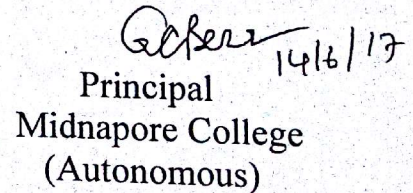 14/6/17
Principal
Midnapore College
(Autonomous)